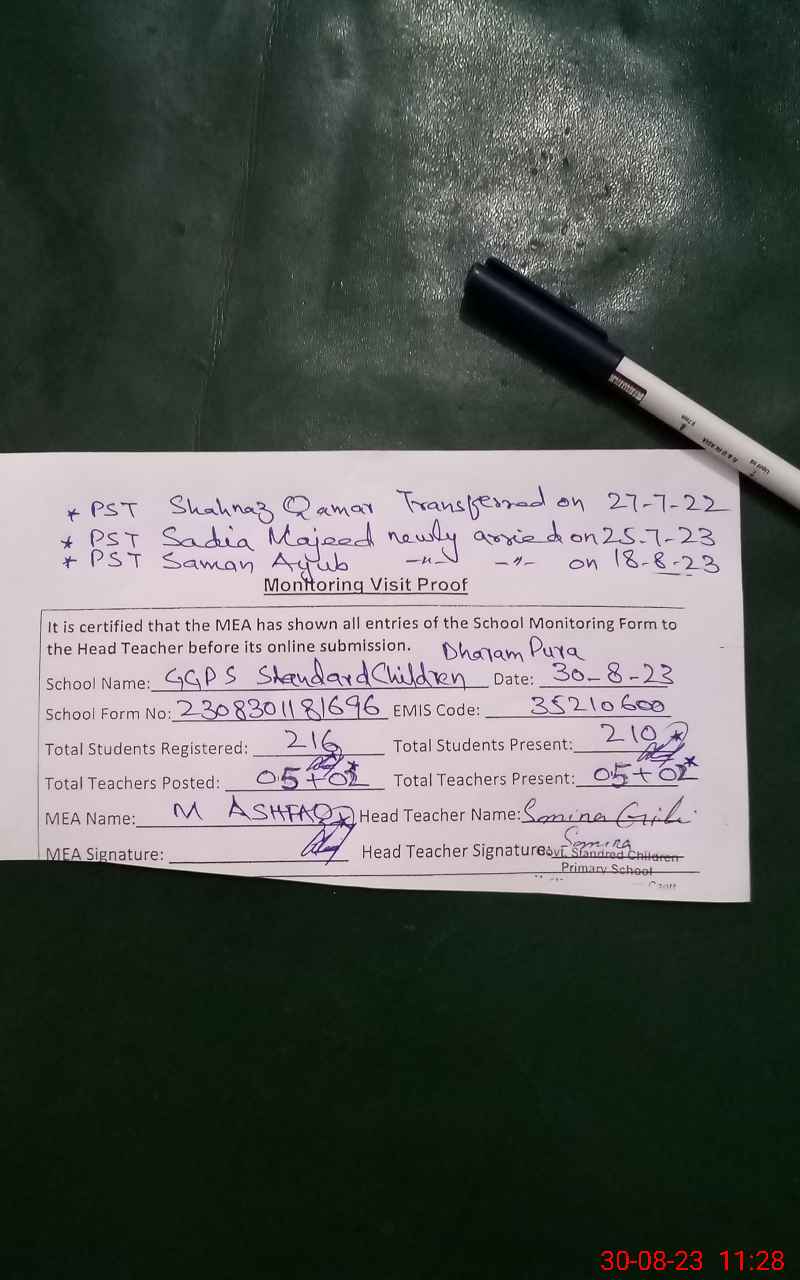 * PST Shahnaz Qamar Transferred on 27-7-22
* PST Sadia Majeed newly arried on 25-7-23
* PST Saman Ayub -"- -"- on 18-8-23
Monitoring Visit Proof
It is certified that the MEA has shown all entries of the School Monitoring Form to
the Head Teacher before its online submission.
Dharam Pura
School Name: GGPS Standard Children Date: 30-8-23
School Form No: 2308301181696 EMIS Code: 35210600
Total Students Registered: 216 Total Students Present: 210 *
Total Teachers Posted: 05+02* Total Teachers Present: 05+02*
MEA Name: M ASHFAQ Head Teacher Name: Somina
MEA Signature: Head Teacher Signature:
Govt. Standred Children
Primary School
0.7mm
30-08-23 11:28